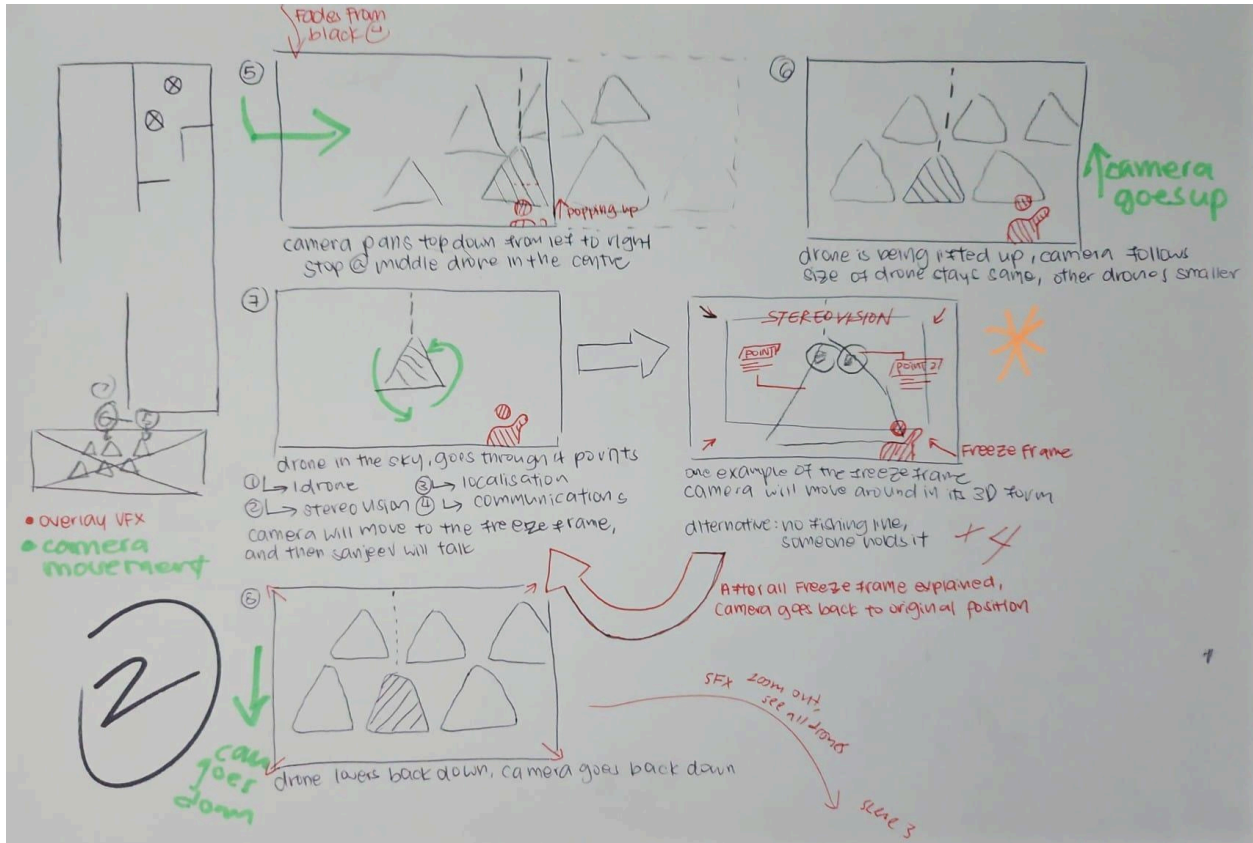 Fades from
black
⑤
↑popping up
camera pans top down from left to right
stop @ middle drone in the centre
⑥
camera
goes up
drone is being lifted up, camera follows
size of drone stays same, other drones smaller
⑦
drone in the sky, goes through 4 points
① ↳ 1drone ③ ↳ localisation
② ↳ stereovision ④ ↳ communications
camera will move to the freeze frame,
and then sanjeev will talk
STEREOVISION
POINT
POINT 2
FREEZE FRAME
one example of the freeze frame
camera will move around in its 3D form
alternative: no fishing line,
someone holds it
+4
After all Freeze frame explained,
camera goes back to original position
• overlay VFX
• camera
movement
2
cam
goes
down
drone lowers back down, camera goes back down
SFX zoom out,
see all drones
scene 3